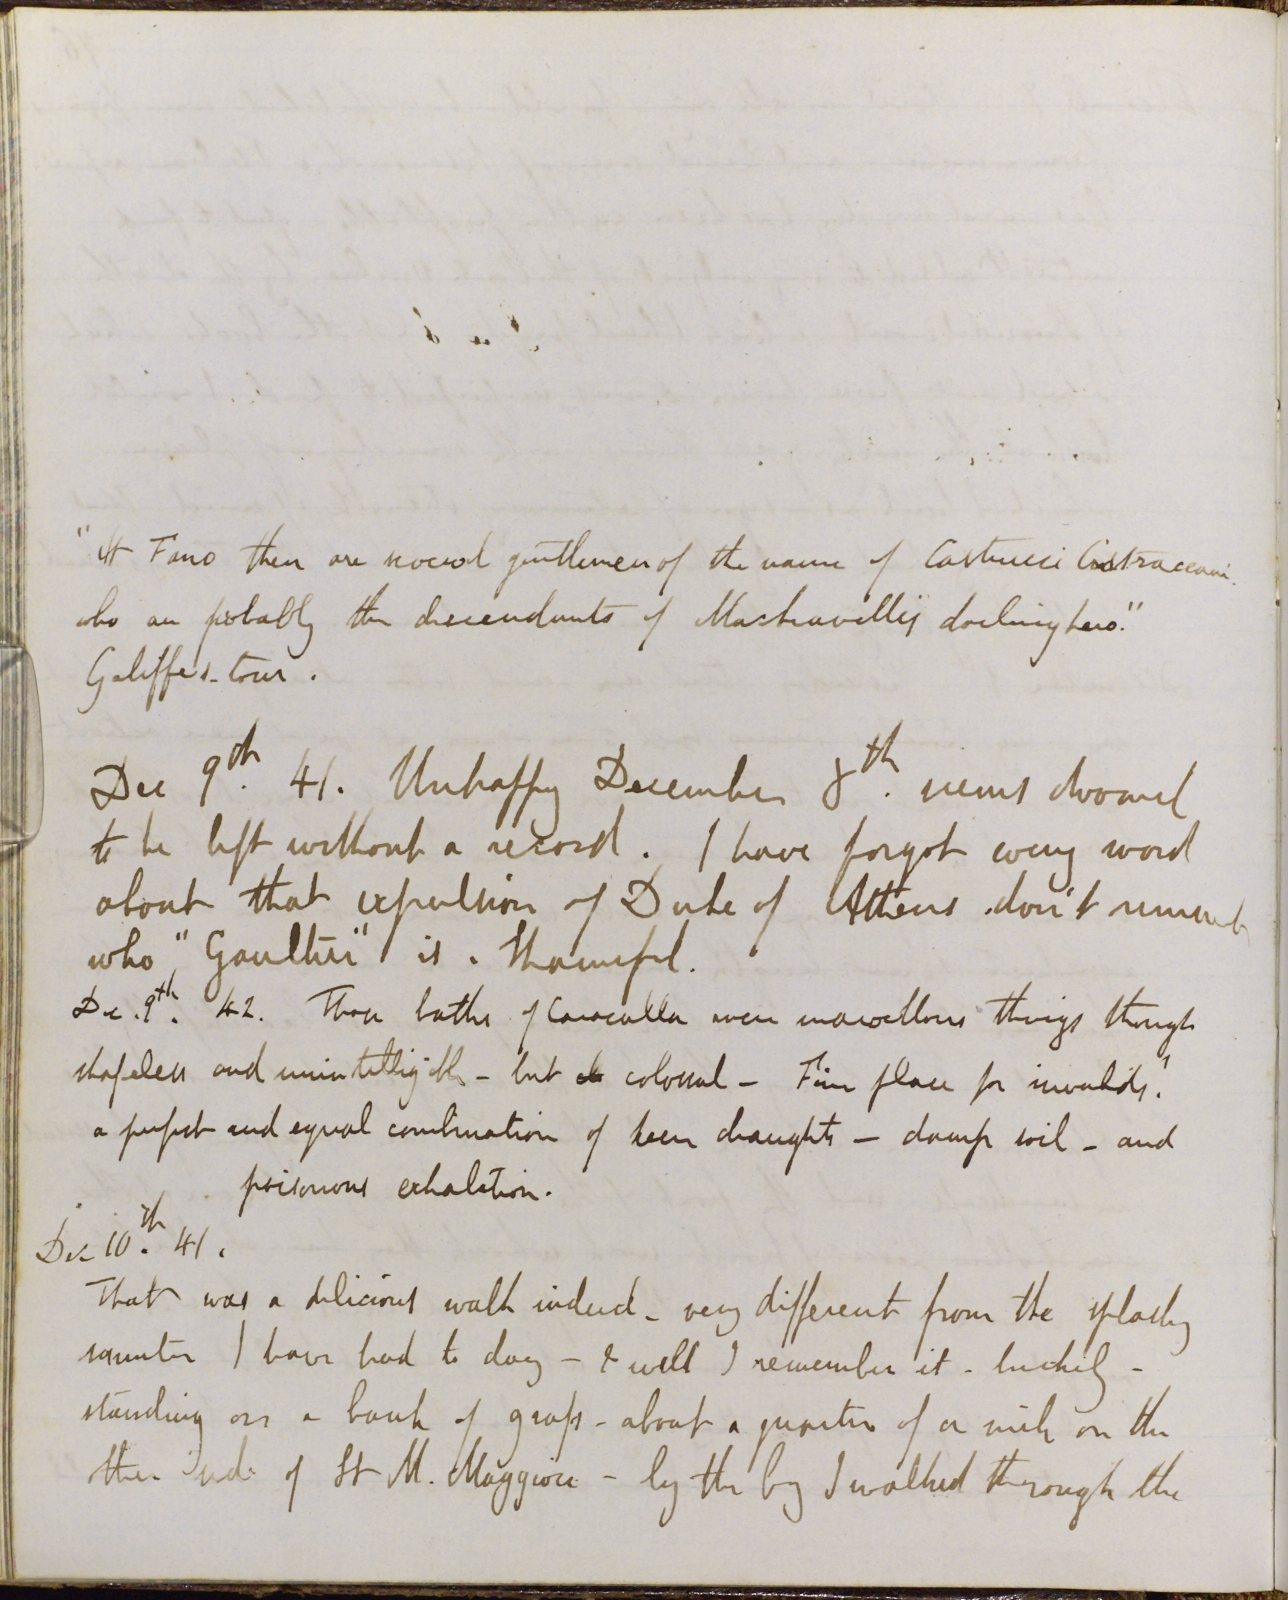 "At Fano there are several gentlemen of the name of Castrucci Castracani.
who are probably the descendants of Machiavelli's darling hero."
Galiffe's tour.
Dec 9th. 41. Unhappy December 8th. seems doomed
to be left without a record. I have forgot every word
about that expulsion of Duke of Athens don't rememb
who "Gaultier" is. Shameful.
Dec. 9th. 42. Those baths of Caracalla were marvellous things though
shapeless and unintelligible - but colossal - Fine place for invalids.
a perfect and equal combination of keen draughts - damp soil - and
poisonous exhalation.
Dec 10th. 41.
That was a delicious walk indeed - very different from the splashy
saunter I have had to day - & well I remember it - luckily -
standing on a bank of grass - about a quarter of a mile on the
other side of St M. Maggiore - by the by I walked through the